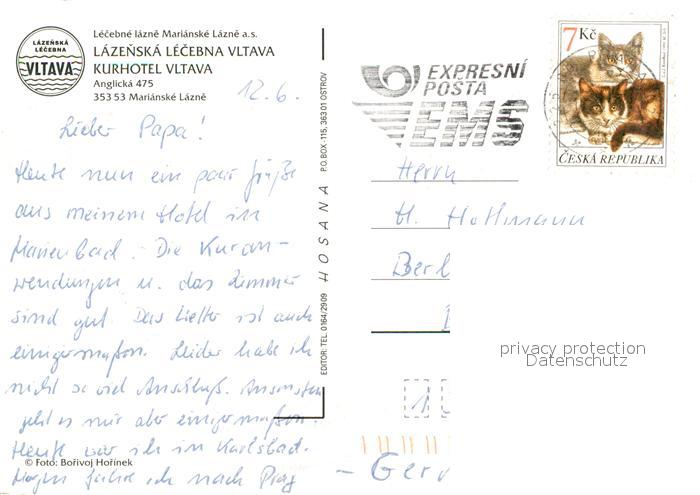 Léčebné lázně Mariánské Lázně a.s.
LÁZEŇSKÁ LÉČEBNA VLTAVA
KURHOTEL VLTAVA
Anglická 475
353 53 Mariánské Lázně
LÁZEŇSKÁ LÉČEBNA
VLTAVA
12.6.
Lieber Papa!
Heute nun ein paar Grüße
aus meinem Hotel in
Marienbad. Die Kuran-
wendungen u. das Zimmer
sind gut. Das Wetter ist auch
einigermaßen. Leider habe ich
nicht so viel Anschluß. Ansonsten
geht es mir aber einigermaßen.
Heute war ich in Karlsbad.
Morgen fahre ich nach Prag
© Foto: Bořivoj Hořínek
EDITOR: TEL. 0164/2909 HOSANA P.O.BOX-115, 363 01 OSTROV
EXPRESNÍ
POŠTA
EMS
7 Kč
ČESKÁ REPUBLIKA
Herrn
H. Hoffmann
Berl
1
– Ger
privacy protection
Datenschutz